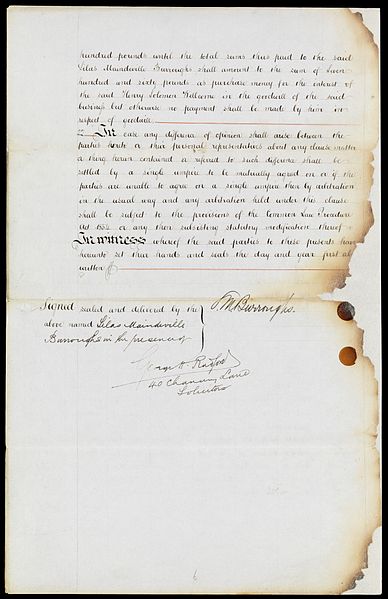 hundred pounds until the total sums thus paid to the said
Silas Mainville Burroughs shall amount to the sum of Seven
hundred and sixty pounds as purchase money for the interest of
the said Henry Solomon Wellcome in the goodwill of the said
business but otherwise no payment shall be made by him in
respect of goodwill
22 In case any difference of opinion shall arise between the
parties hereto or their personal representatives about any clause matter
or thing herein contained or referred to such difference shall be
settled by a single umpire to be mutually agreed on or if the
parties are unable to agree on a single umpire then by arbitration
in the usual way and any arbitration held under this clause
shall be subject to the provisions of the Common Law Procedure
Act 1854 or any then subsisting statutory modification thereof
In witness whereof the said parties to these presents have
hereunto set their hands and seals the day and year first a
written
Signed sealed and delivered by the
above named Silas Mainville
Burroughs in the presence of
S. M. Burroughs.
40 Chancery Lane
Solicitors
6